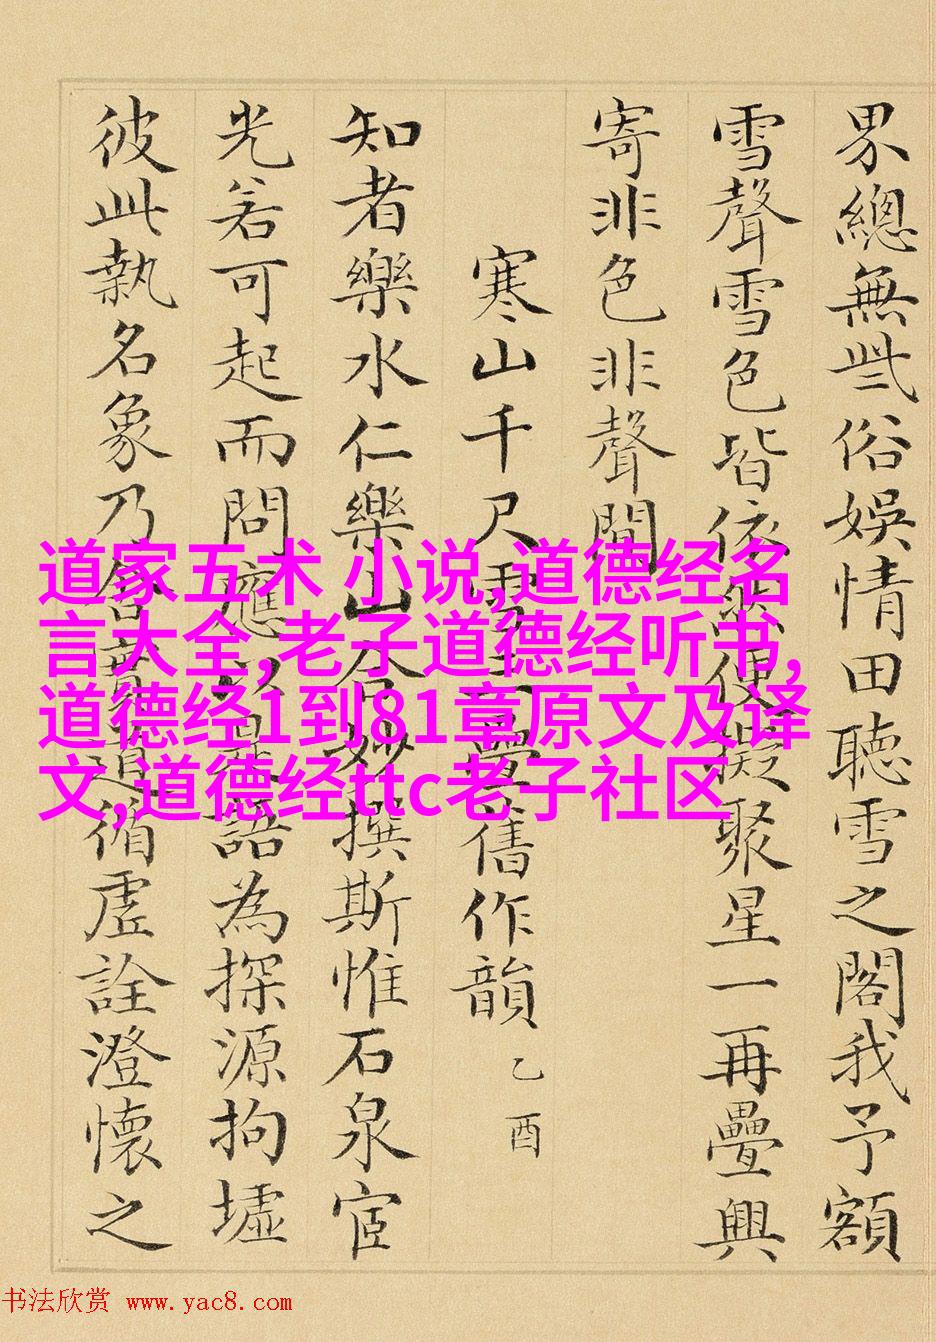 界總無些俗娛情田聽雪之閣我予額
雪聲雪色皆依然便擬聚星一再疊興
寄非色非聲間
寒山千尺雪三疊舊作韻 乙酉
知者樂水仁樂山合妙撰斯惟石泉宧
光若可起而問應以語為探源拘墟
彼此執名象乃舍實循虛詮澄懷之
道家五术 小说,道德经名
言大全,老子道德经听书,
道德经1到81章原文及译
文,道德经ttc老子社区
书法欣赏 www.yac8.com